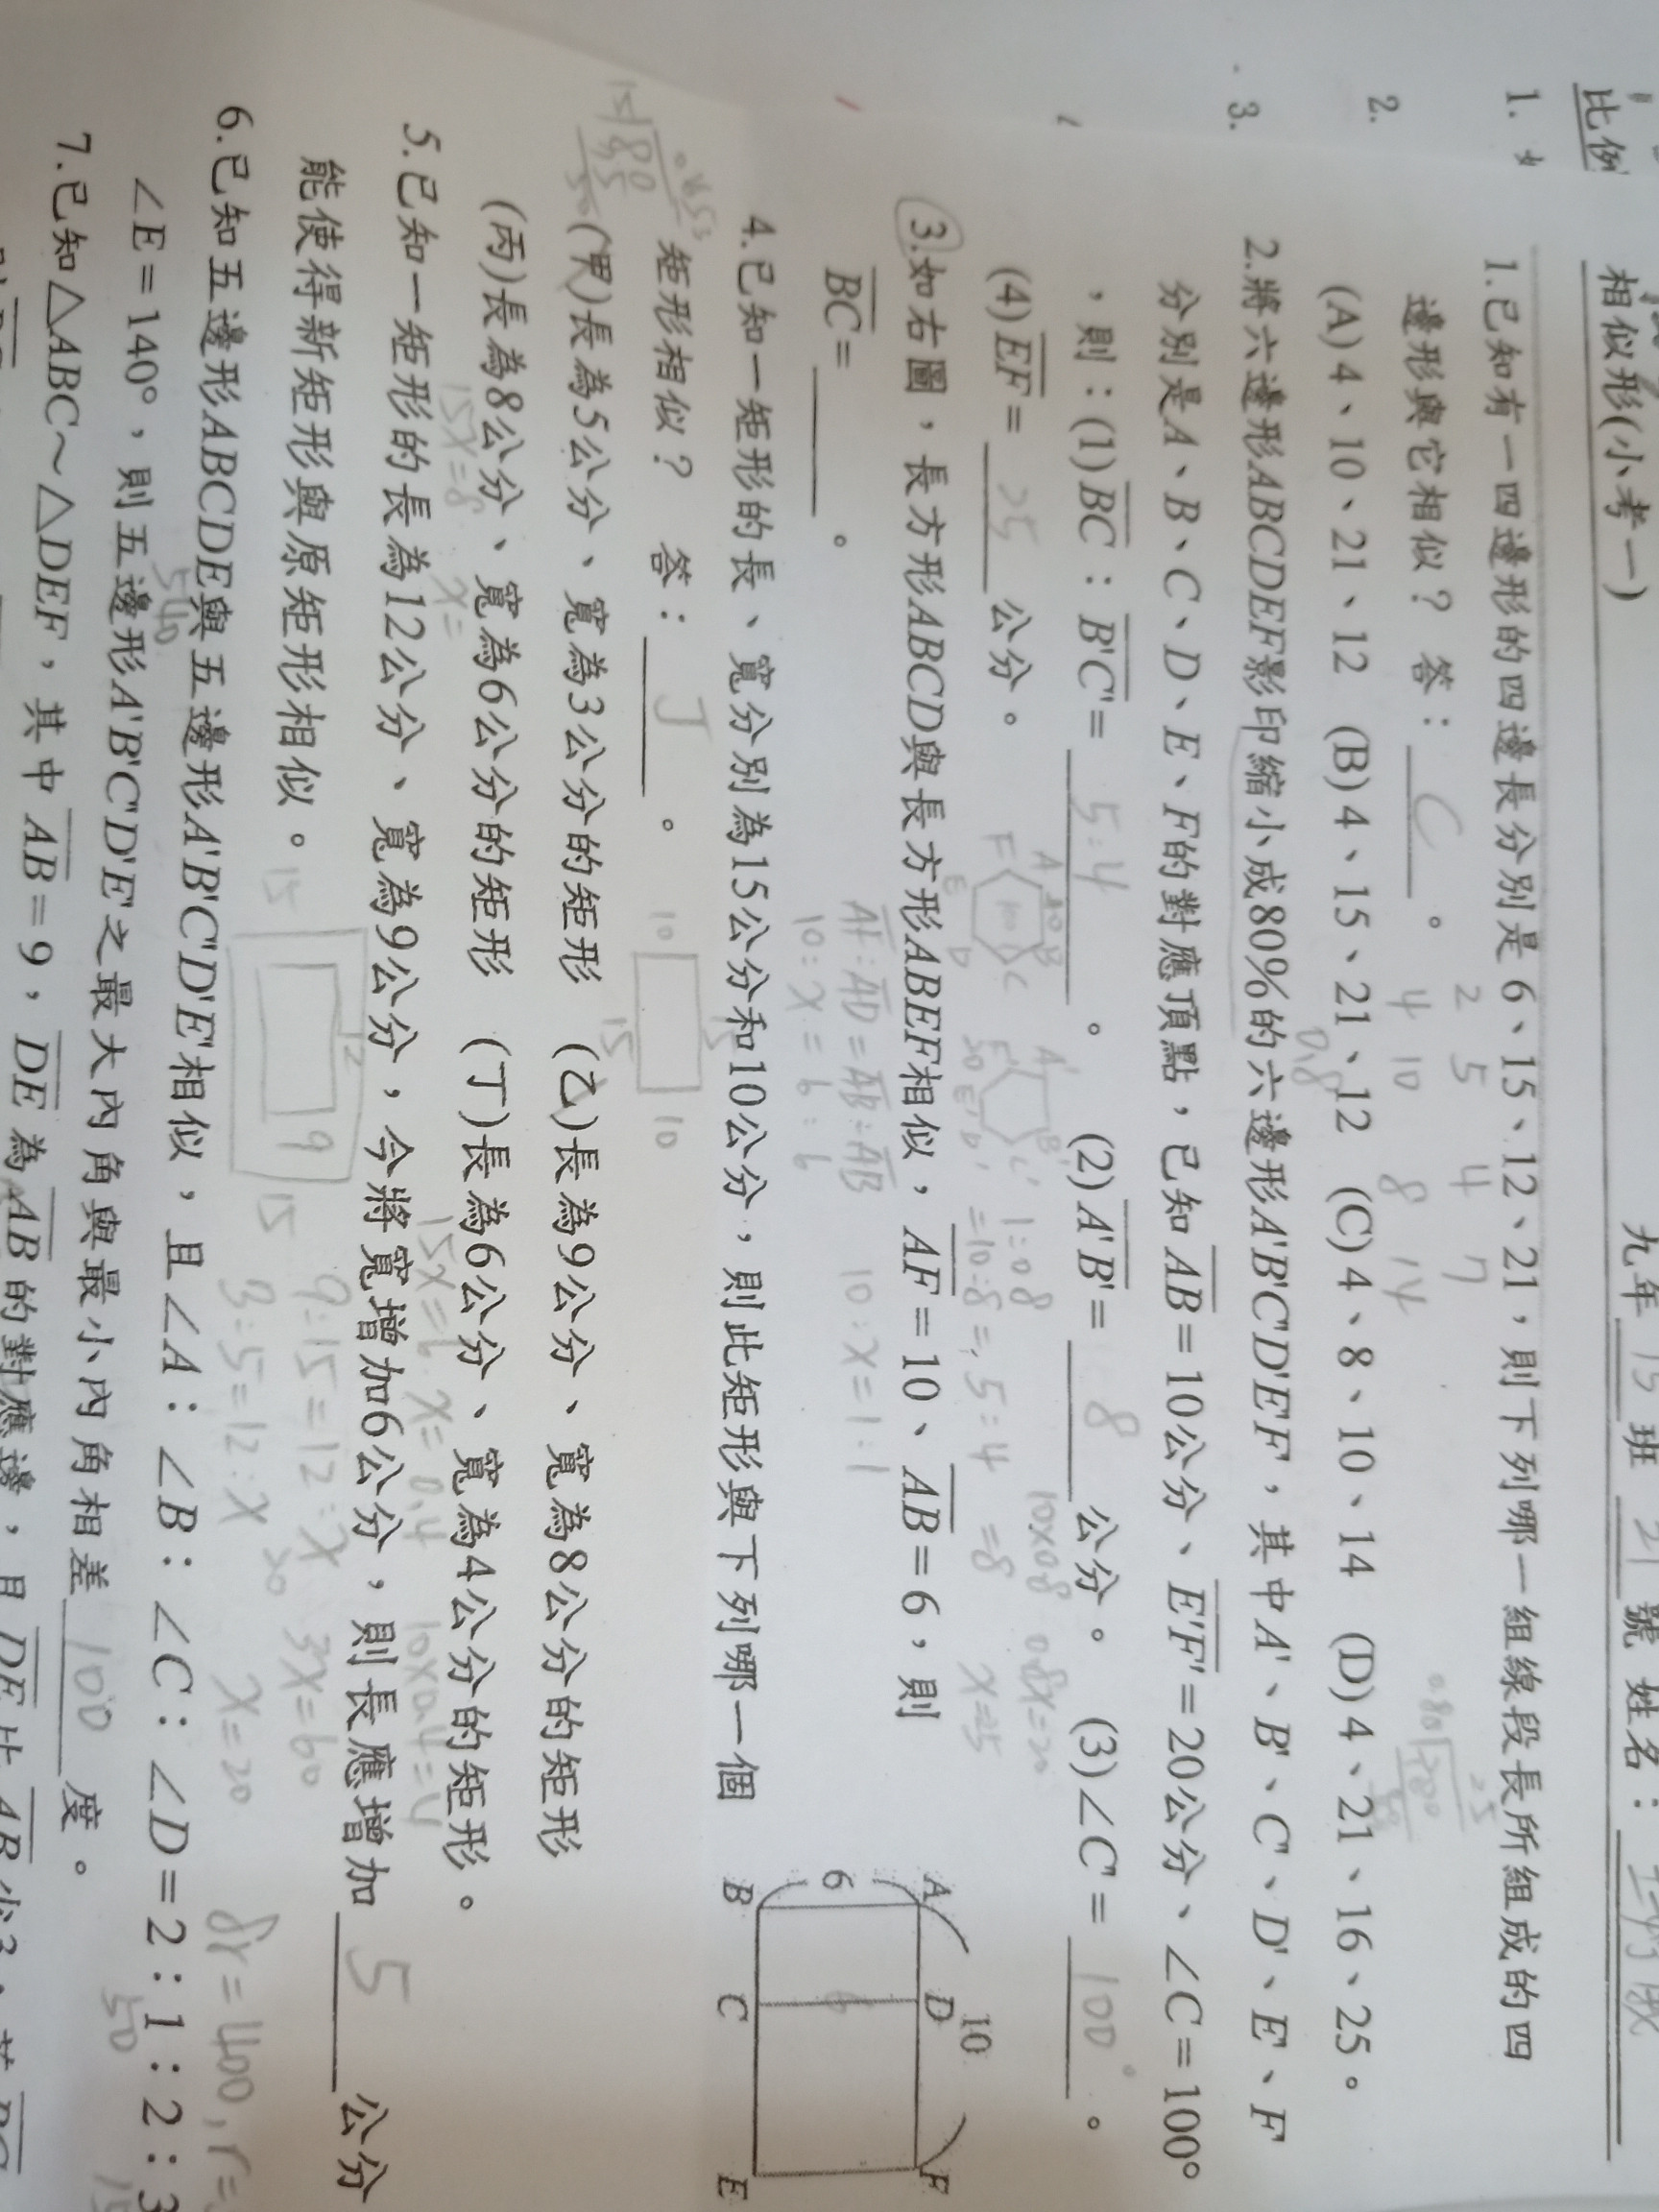 比例
1.
2.
3.
相似形(小考一)
九年 15 班 21 號 姓名：
1.已知有一四邊形的四邊長分別是 6、15、12、21，則下列哪一組線段長所組成的四
邊形與它相似？ 答： C 。
2 5 4 7
4 10 8 14
(A) 4、10、21、12 (B) 4、15、21、12 (C) 4、8、10、14 (D) 4、21、16、25。
2.將六邊形ABCDEF影印縮小成80%的六邊形A'B'C'D'E'F'，其中A'、B'、C'、D'、E'、F'
0.8
分別是A、B、C、D、E、F的對應頂點，已知AB=10公分、E'F'=20公分、∠C=100°
，則：(1)BC：B'C'= 5:4 。 (2)A'B'= 8 公分。 (3)∠C'= 100° 。
(4)EF= 25 公分。
1:0.8
=10:8=5:4
10×0.8
=8
0.8x=20
x=25
3.如右圖，長方形ABCD與長方形ABEF相似，AF=10、AB=6，則
BC= 。
AF:AD=AB:AB
10:x=6:6
10:x=1:1
A D F
10
6
6
B C E
4.已知一矩形的長、寬分別為15公分和10公分，則此矩形與下列哪一個
矩形相似？ 答： 丁 。
10 15 10
15
(甲)長為5公分、寬為3公分的矩形 (乙)長為9公分、寬為8公分的矩形
(丙)長為8公分、寬為6公分的矩形 (丁)長為6公分、寬為4公分的矩形。
15x=8 x=
15x=6 x=0.4 10×0.4=4
5.已知一矩形的長為12公分、寬為9公分，今將寬增加6公分，則長應增加 5 公分
能使得新矩形與原矩形相似。
12
15 9 15
9:15=12:x
3:5=12:x
3x=60
x=20
6.已知五邊形ABCDE與五邊形A'B'C'D'E'相似，且∠A：∠B：∠C：∠D=2：1：2：3
∠E=140°，則五邊形A'B'C'D'E'之最大內角與最小內角相差 100 度。
540
8r=400,r=
50
7.已知△ABC~△DEF，其中AB=9，DE為AB的對應邊，且DE比AB少3，若